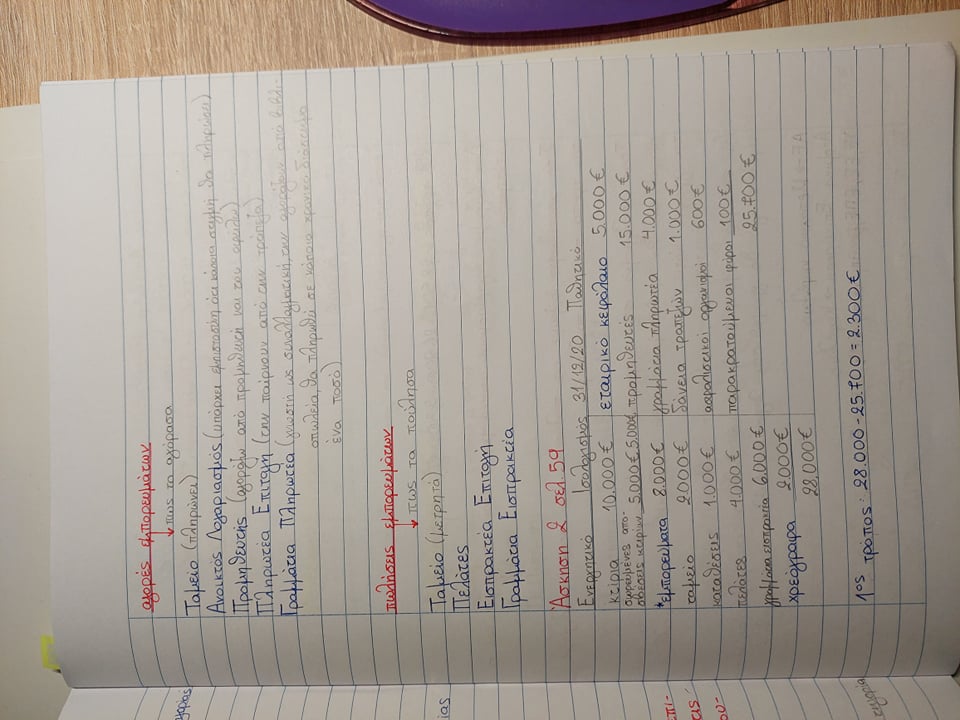 αγορές εμπορευμάτων
πως τα αγόρασα
Ταμείο (πληρώνει)
Ανοικτός Λογαριασμός (υπάρχει εμπιστοσύνη ότι κάποια στιγμή θα πληρώσει)
Προμηθευτής (αγοράζω από προμηθευτή και του οφείλω)
Πληρωτέα Επιταγή (την παίρνουν από την τράπεζα)
Γραμμάτια Πληρωτέα (γνωστή ως συναλλαγματική, την αγοράζουν από βιβλι-
οπωλεία, θα πληρωθεί σε κάποιο χρονικό διάστημα
ένα ποσό)
πωλήσεις εμπορευμάτων
πως τα πούλησα
Ταμείο (μετρητά)
Πελάτες
Εισπρακτέα Επιταγή
Γραμμάτια Εισπρακτέα
Άσκηση 2 σελ. 59
Ενεργητικό Ισολογισμός 31/12/20 Παθητικό
κτίρια 10.000€ εταιρικό κεφάλαιο 5.000€
σωρευμένες απο-
σβέσεις κτιρίων 5.000€ 5.000€ προμηθευτές 15.000€
*εμπορεύματα 8.000€ γραμμάτια πληρωτέα 4.000€
ταμείο 2000€ δάνεια τραπεζών 1.000€
καταθέσεις 1.000€ ασφαλιστικοί οργανισμοί 600€
πελάτες 4.000€ παρακρατούμενοι φόροι 100€
25.700€
γραμμάτια εισπρακτέα 6.000€
χρεόγραφα 2000€
28.000€
1ος τρόπος: 28.000-25.700=2.300€